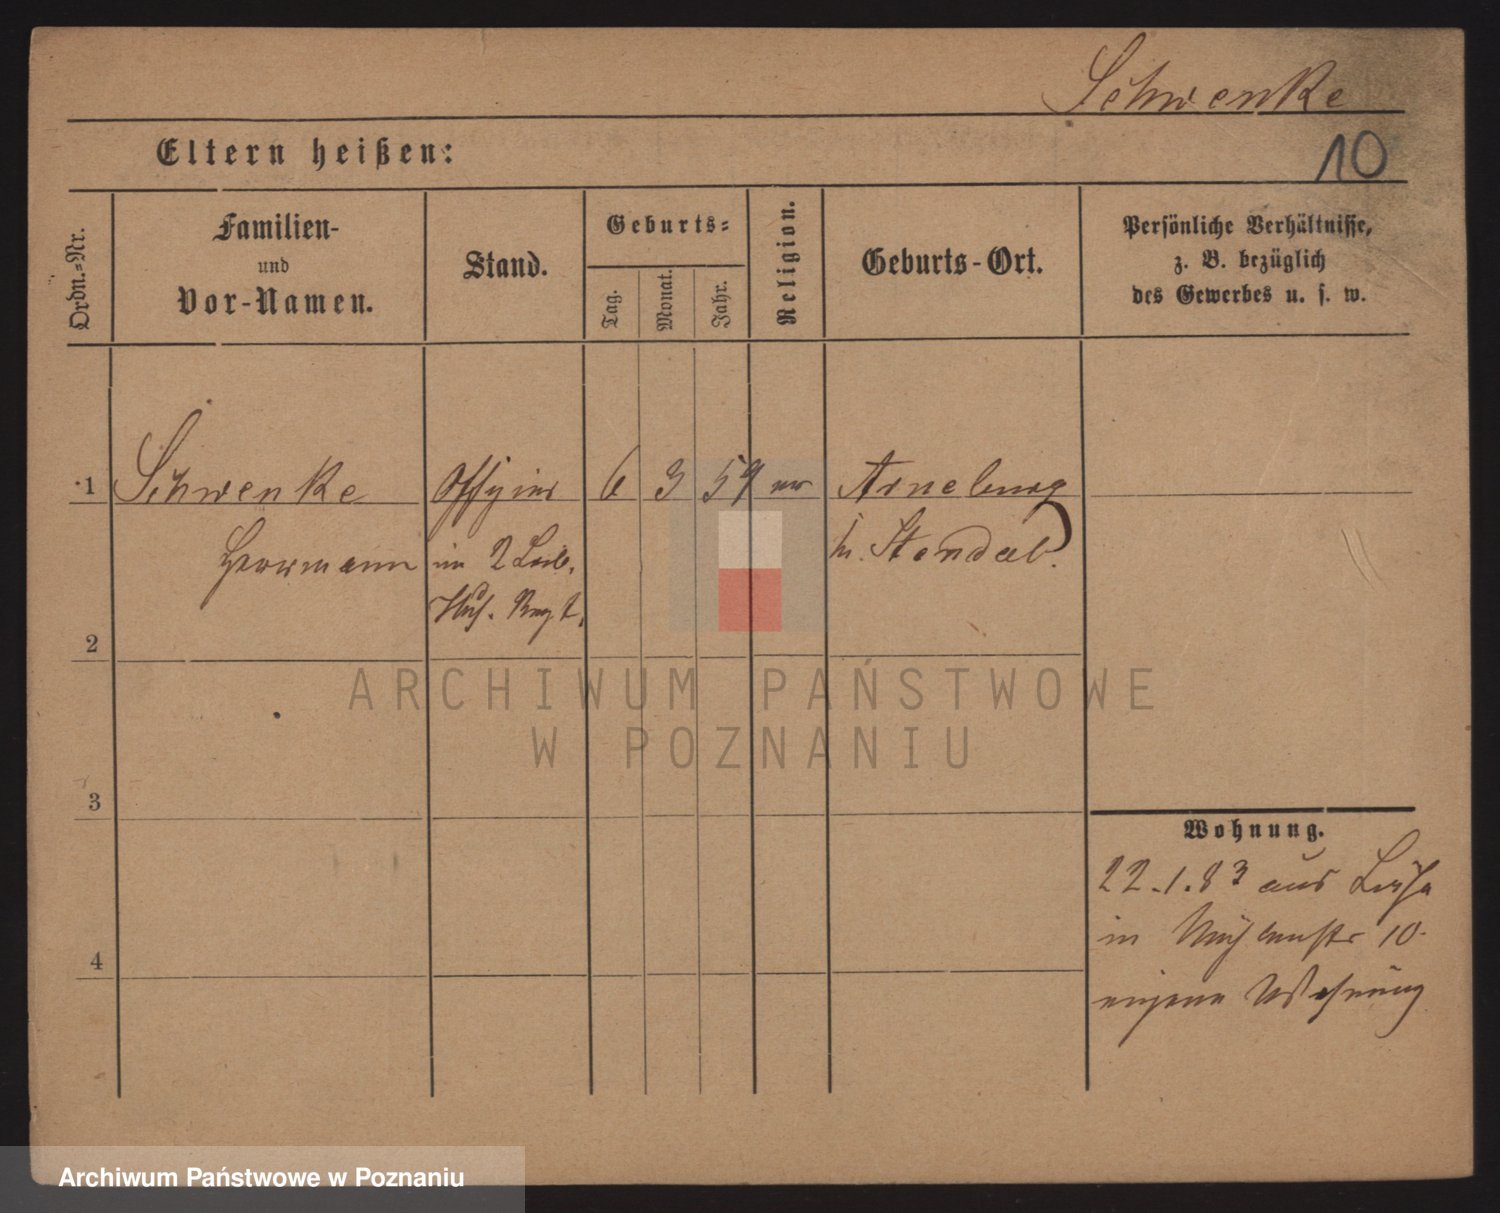 Schwenke
Eltern heißen:
10
Ordn.=Nr.
Familien-
und
Vor-Namen.
Stand.
Geburts=
Tag.
Monat.
Jahr.
Religion.
Geburts-Ort.
Persönliche Verhältnisse,
z. B. bezüglich
des Gewerbes u. s. w.
1 Schwenke Offizier 6 3 59 ev Arneburg
Herrmann im 2 Leib. b. Stendal.
Hus. Regt.
2
ARCHIWUM PAŃSTWOWE
W POZNANIU
3
Wohnung.
22.1.83 aus Lissa
in Mühlenstr 10.
eigene Wohnung
4
Archiwum Państwowe w Poznaniu